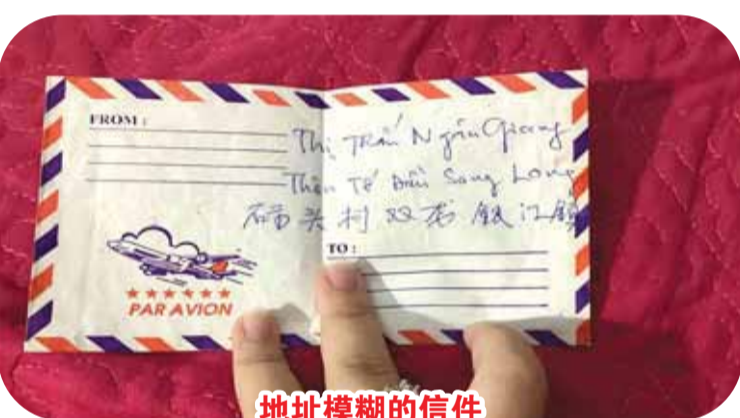 FROM :
Thị Trấn Ngân Giang
Thôn Tế Đầu Song Long
码头村 双龙 银江镇
TO :
PAR AVION
地址模糊的信件